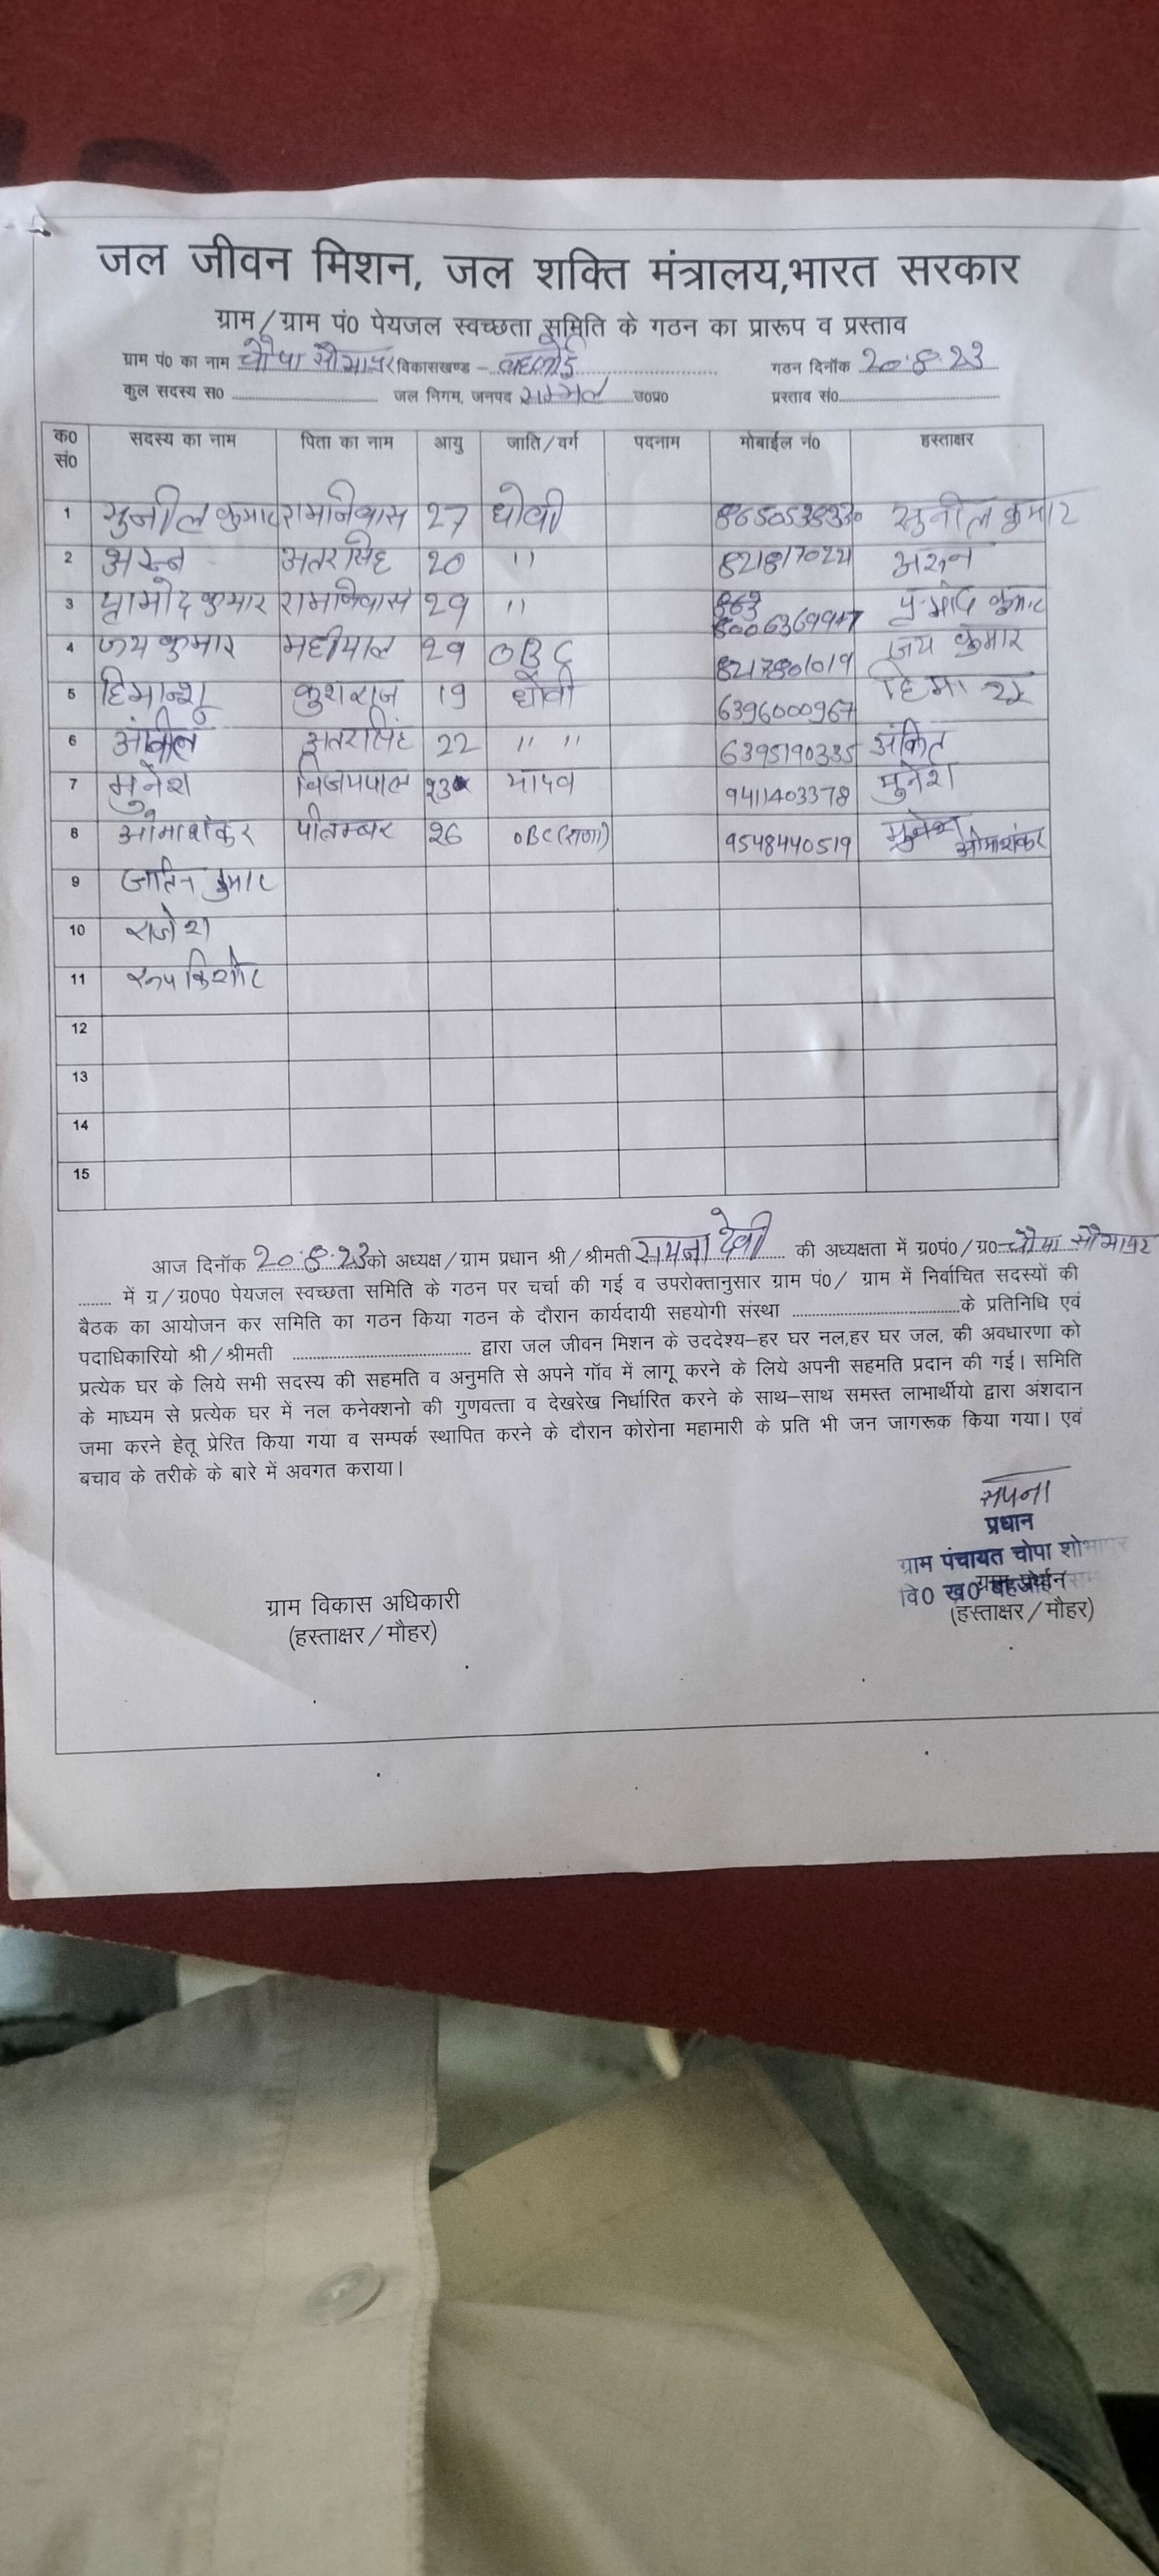 जल जीवन मिशन, जल शक्ति मंत्रालय,भारत सरकार
ग्राम/ग्राम पं0 पेयजल स्वच्छता समिति के गठन का प्रारूप व प्रस्ताव
ग्राम पं0 का नाम चौपा सौभापुर विकासखण्ड - बहजोई गठन दिनॉक 20.8.23
कुल सदस्य स0 जल निगम, जनपद सम्भल उ0प्र0 प्रस्ताव सं0
क0 सं0 सदस्य का नाम पिता का नाम आयु जाति/वर्ग पदनाम मोबाईल नं0 हस्ताक्षर
1 सुनील कुमार रामनिवास 27 धोवी सुनील कुमार
2 अतरसिंह 20 " 
3 रामनिवास 29 "
4 जय कुमार महीपाल 29 OBC जय कुमार
5 हिमान्शू कुशराज 19 धोवी 6396000967
6 अतरसिंह 22 " " 6395190335 अंकित
7 मुनेश विजयपाल यादव 9411403378 मुनेश
8 ओमाशंकर पीतम्बर 26 9548440519 ओमाशंकर
9 जतिन कुमार
10 राजेश
11 रूपकिशोर
12
13
14
15
आज दिनॉक 20.8.23 को अध्यक्ष/ग्राम प्रधान श्री/श्रीमती देवी की अध्यक्षता में ग्र0पं0/ग्र0 चौपा सौभापुर
में ग्र/ग्र0प0 पेयजल स्वच्छता समिति के गठन पर चर्चा की गई व उपरोक्तानुसार ग्राम पं0/ ग्राम में निर्वाचित सदस्यों की
बैठक का आयोजन कर समिति का गठन किया गठन के दौरान कार्यदायी सहयोगी संस्था के प्रतिनिधि एवं
पदाधिकारियो श्री/श्रीमती द्वारा जल जीवन मिशन के उददेश्य-हर घर नल,हर घर जल, की अवधारणा को
प्रत्येक घर के लिये सभी सदस्य की सहमति व अनुमति से अपने गॉव में लागू करने के लिये अपनी सहमति प्रदान की गई। समिति
के माध्यम से प्रत्येक घर में नल कनेक्शनो की गुणवत्ता व देखरेख निर्धारित करने के साथ-साथ समस्त लाभार्थीयो द्वारा अंशदान
जमा करने हेतू प्रेरित किया गया व सम्पर्क स्थापित करने के दौरान कोरोना महामारी के प्रति भी जन जागरूक किया गया। एवं
बचाव के तरीके के बारे में अवगत कराया।
सपना
प्रधान
ग्राम पंचायत चोपा शोभापुर
वि0 ख0 बहजोई
ग्राम विकास अधिकारी ग्राम प्रधान
(हस्ताक्षर/मौहर) (हस्ताक्षर/मौहर)